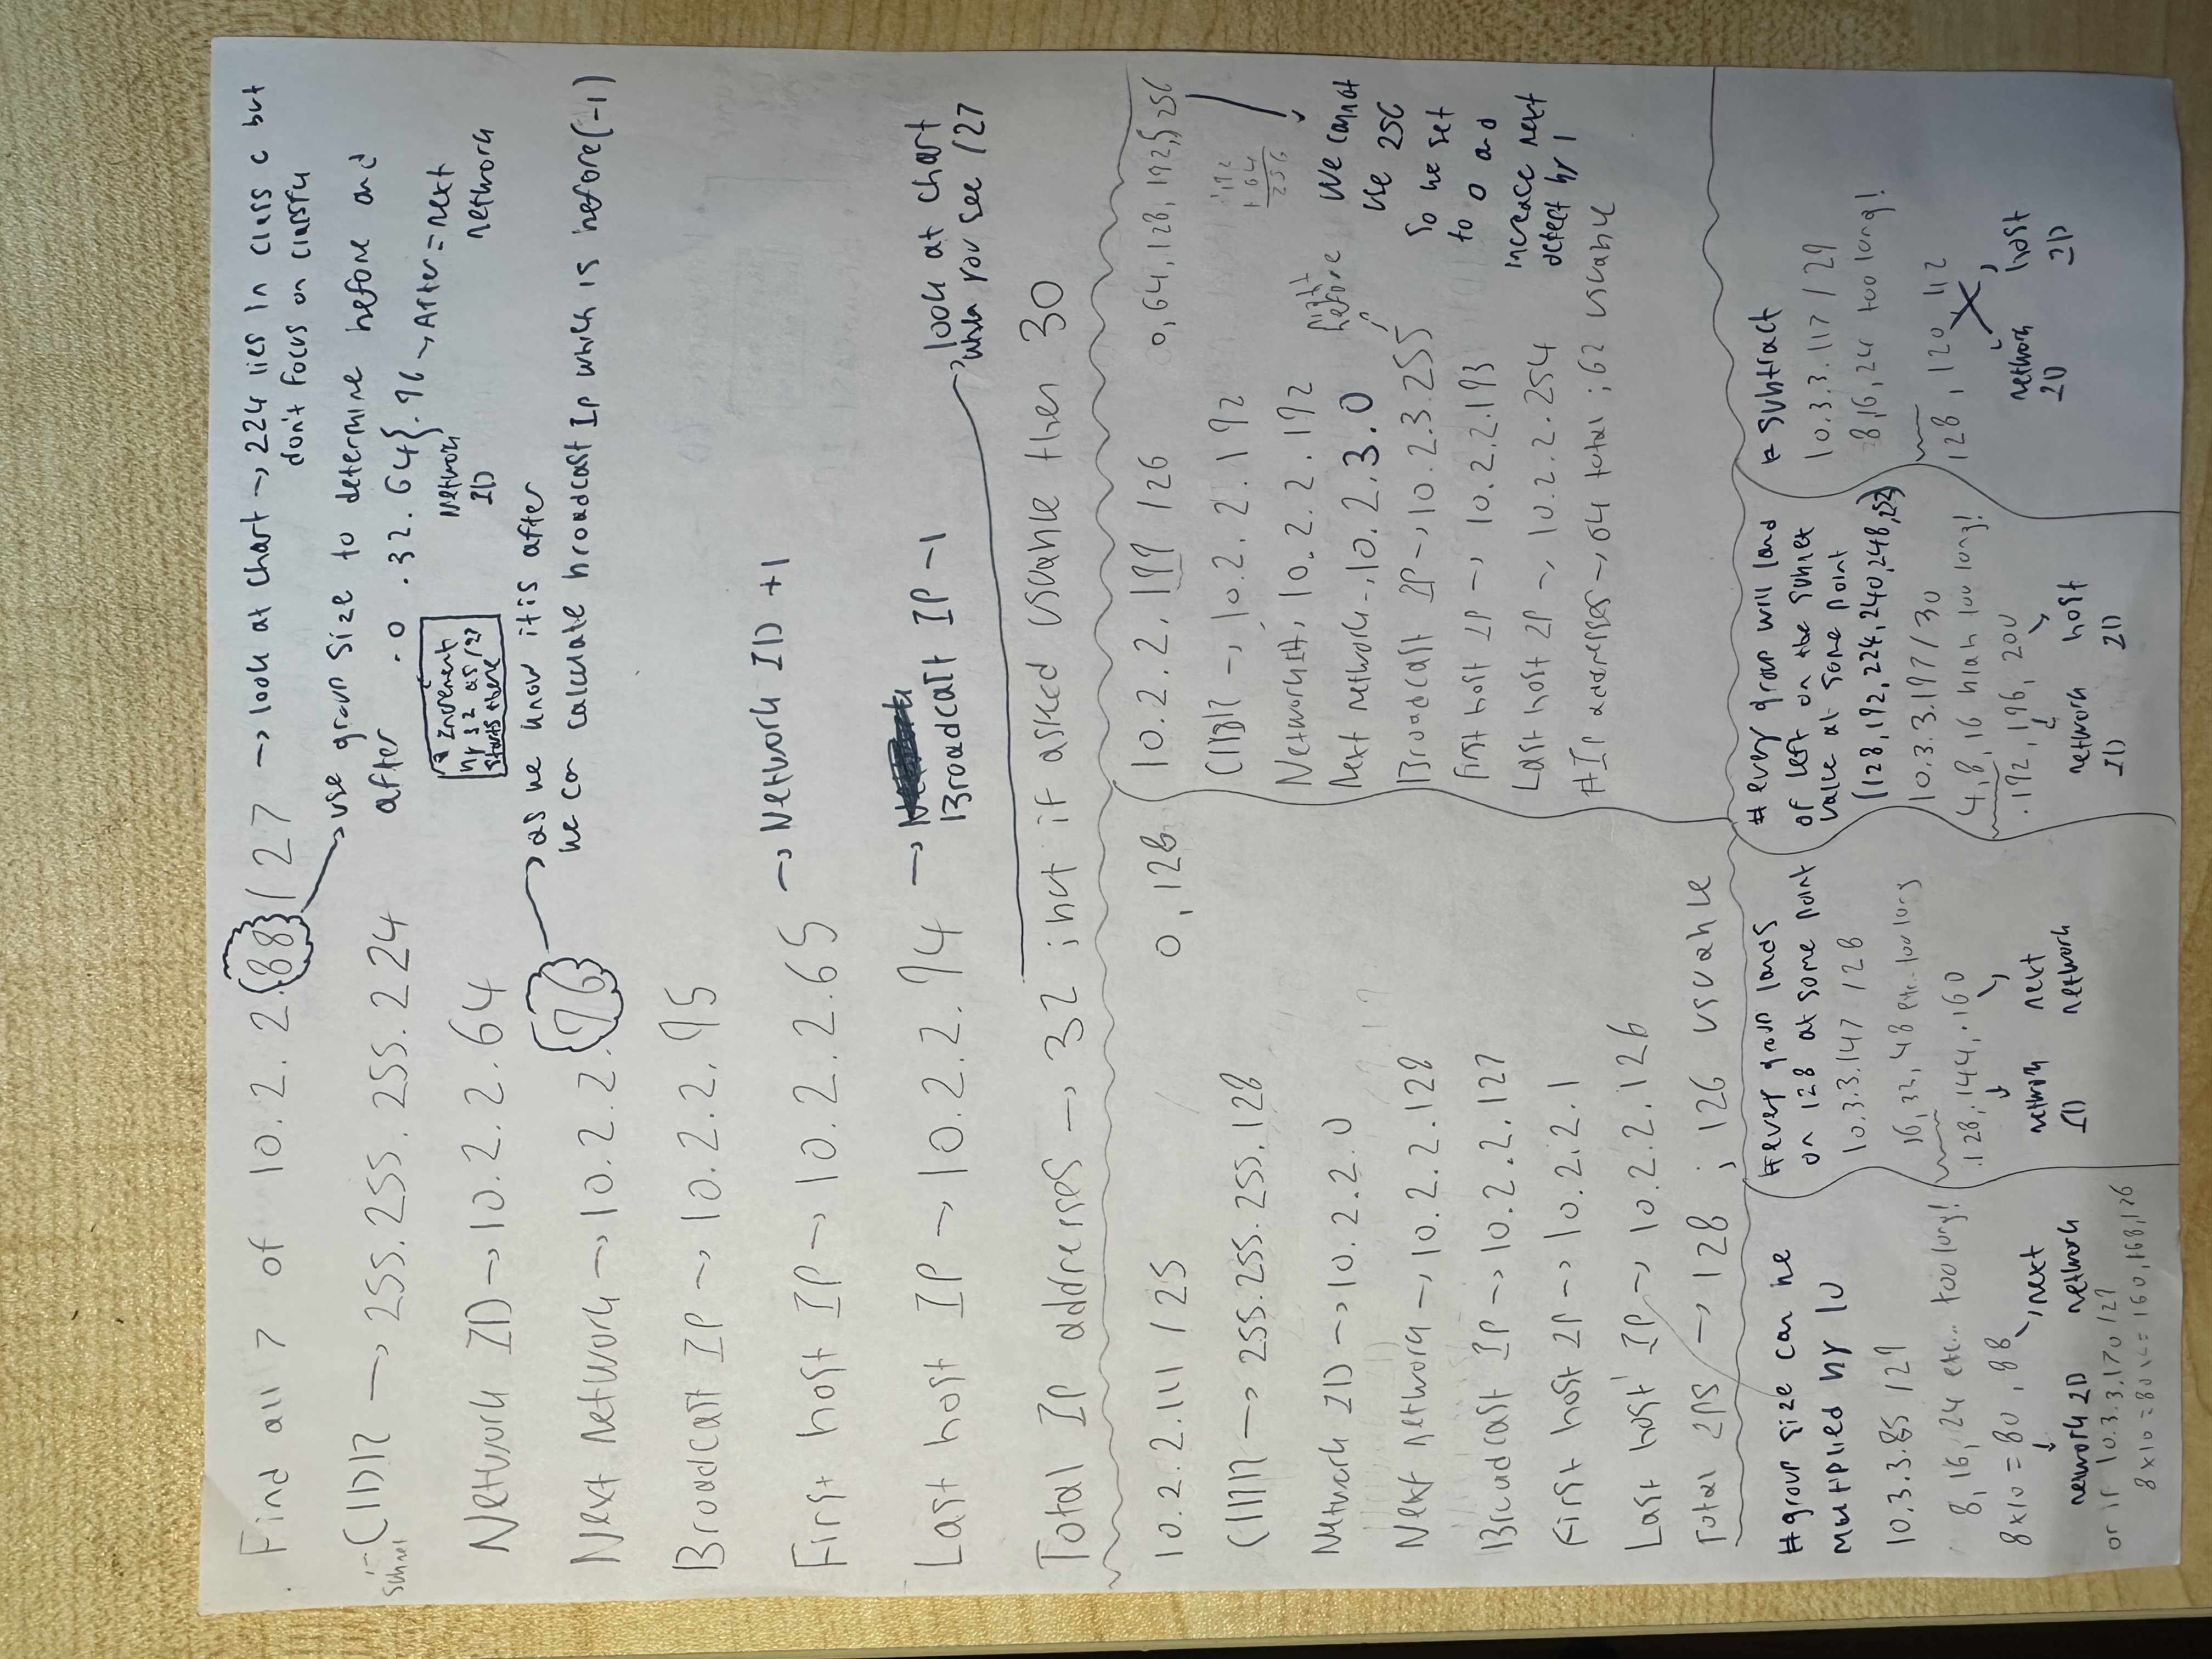 Find all 7 of 10.2.2.88/27 → look at chart → 224 lies in class c but
don't focus on classfu
→ use group size to determine before and
after .0 .32. 64}.96 → After = next
network
Network
ID
* Increment
by 32 as /27
starts there
CIDR → 255.255.255.224
Subnet
Network ID → 10.2.2.64
Next network → 10.2.2.96
→ as we know it is after
we can calculate broadcast Ip which is before(-1)
Broadcast IP → 10.2.2.95
First host IP → 10.2.2.65 → Network ID +1
Last host IP → 10.2.2.94 →
Broadcast IP -1
→ look at chart
when you see /27
Total IP addresses → 32 ; but if asked usuable then 30
10.2.2.111 /25 0, 128
CIDR → 255.255.255.128
Network ID → 10.2.2.0
Next network → 10.2.2.128
Broadcast IP → 10.2.2.127
First host IP → 10.2.2.1
Last host IP → 10.2.2.126
Total IPS → 128 ; 126 usuable
10.2.2.199 /26 0, 64, 128, 192,} 256
CIDR → 10.2.2.192
192
+ 64
256
Network ID, 10.2.2.192
Next network → 10.2.3.0
right
before
Broadcast IP → 10.2.3.255
First host IP → 10.2.2.193
Last host IP → 10.2.2.254
#Ip addresses → 64 total ; 62 usuable
We cannot
use 256
so we set
to 0 and
increace next
octect by 1
#group size can be
multiplied by 10
10.3.3.85 /29
8, 16, 24 etc... too long!
8x10 = 80, 88
network ID
next
network
or if 10.3.3.170 /29
8x10=80x2= 160,168,176
#every group lands
on 128 at some point
10.3.3.147 /28
16, 32, 48 etc.. too long
.128, .144, .160
network
ID
next
network
# every group will land
of left on the subnet
value at some point
(128, 192, 224, 240, 248, 252)
10.3.3.197/30
4, 8, 16 blah too long!
.192, 196, 200
network
ID
host
ID
# subtract
10.3.3.117 /29
8,16,24 too long!
128, 120, 112
network
ID
host
ID